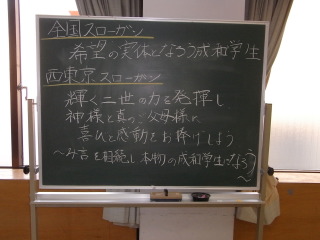 全国スローガン
希望の実体となろう成和学生
西東京スローガン
輝く二世の力を発揮し
神様と真のご父母様に
喜びと感動をお捧げしよう
～み言を相続し本物の成和学生になろう～